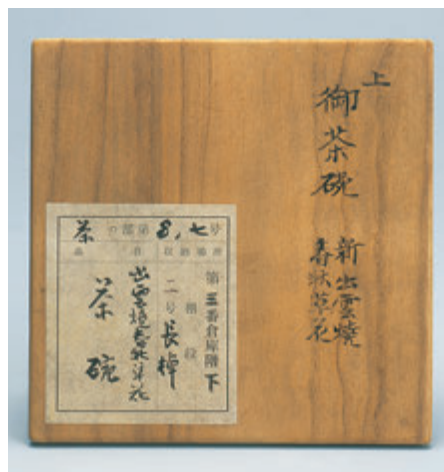 上
御茶碗
新出雲焼
春秋草花
茶の部第8,七号
品名 収納場所
第三番倉庫階下
棚段
二号長棹
出雲焼春秋草花
茶碗